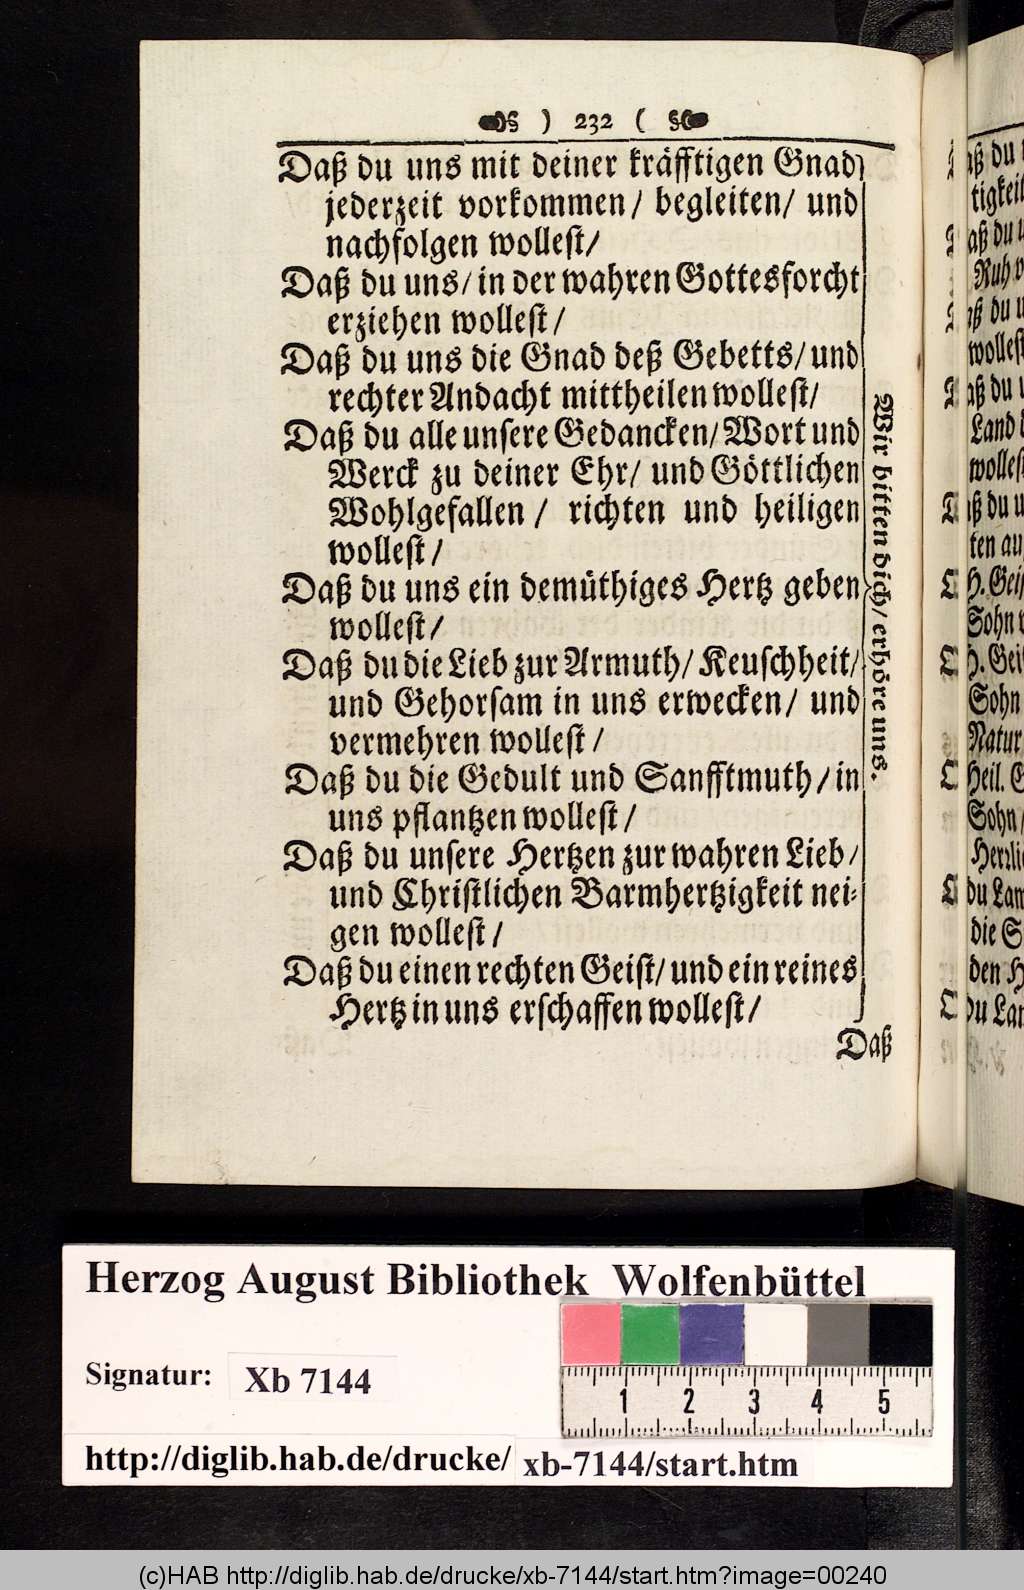 ) 232 (
Daß du uns mit deiner kräfftigen Gnad
jederzeit vorkommen/ begleiten/ und
nachfolgen wollest/
Daß du uns/ in der wahren Gottesforcht
erziehen wollest/
Daß du uns die Gnad deß Gebetts/ und
rechter Andacht mittheilen wollest/
Daß du alle unsere Gedancken/ Wort und
Werck zu deiner Ehr/ und Göttlichen
Wohlgefallen / richten und heiligen
wollest/
Daß du uns ein demüthiges Hertz geben
wollest/
Daß du die Lieb zur Armuth/ Keuschheit/
und Gehorsam in uns erwecken/ und
vermehren wollest /
Daß du die Gedult und Sanfftmuth/ in
uns pflantzen wollest/
Daß du unsere Hertzen zur wahren Lieb/
und Christlichen Barmhertzigkeit nei-
gen wollest/
Daß du einen rechten Geist/ und ein reines
Hertz in uns erschaffen wollest/
Wir bitten dich/ erhöre uns.
Daß
aß du
tigkeit
aß du
Ruh
aß du
wollest
aß du
Land
wollest
aß du
ten
H. Geist
Sohn
H. Geist
Sohn
Natur
Heil.
Sohn/
du Lam
die
den
Du Lam
Herzog August Bibliothek Wolfenbüttel
Signatur: Xb 7144
1 2 3 4 5
http://diglib.hab.de/drucke/ xb-7144/start.htm
(c)HAB http://diglib.hab.de/drucke/xb-7144/start.htm?image=00240